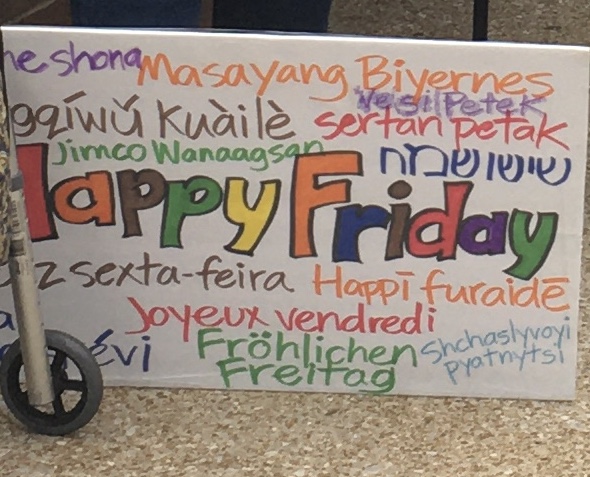 Masayang Biyernes
Vesil Petek
gqíwǔ kuàilè sertan petak
Jimco Wanaagsan שישו שמח
Happy Friday
z sexta-feira Happī furaidē
Joyeux vendredi
évi Fröhlichen Shchaslyvoyi
Freitag pyatnytsi